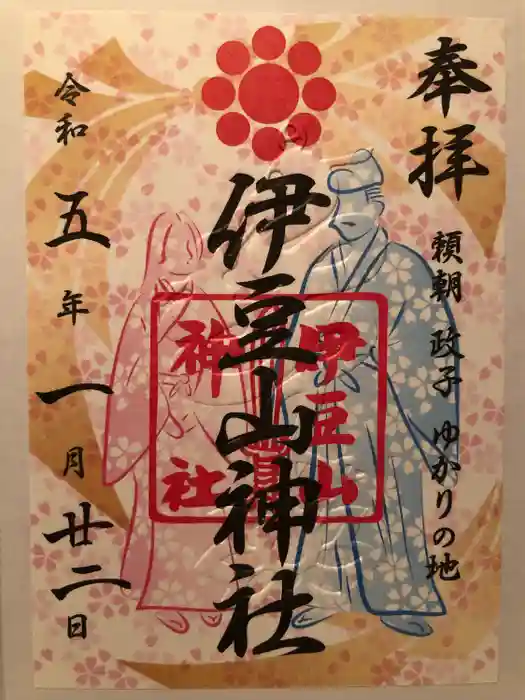 奉拝
頼朝 政子 ゆかりの地
伊豆山神社
伊豆山
神社
令和五年一月廿二日